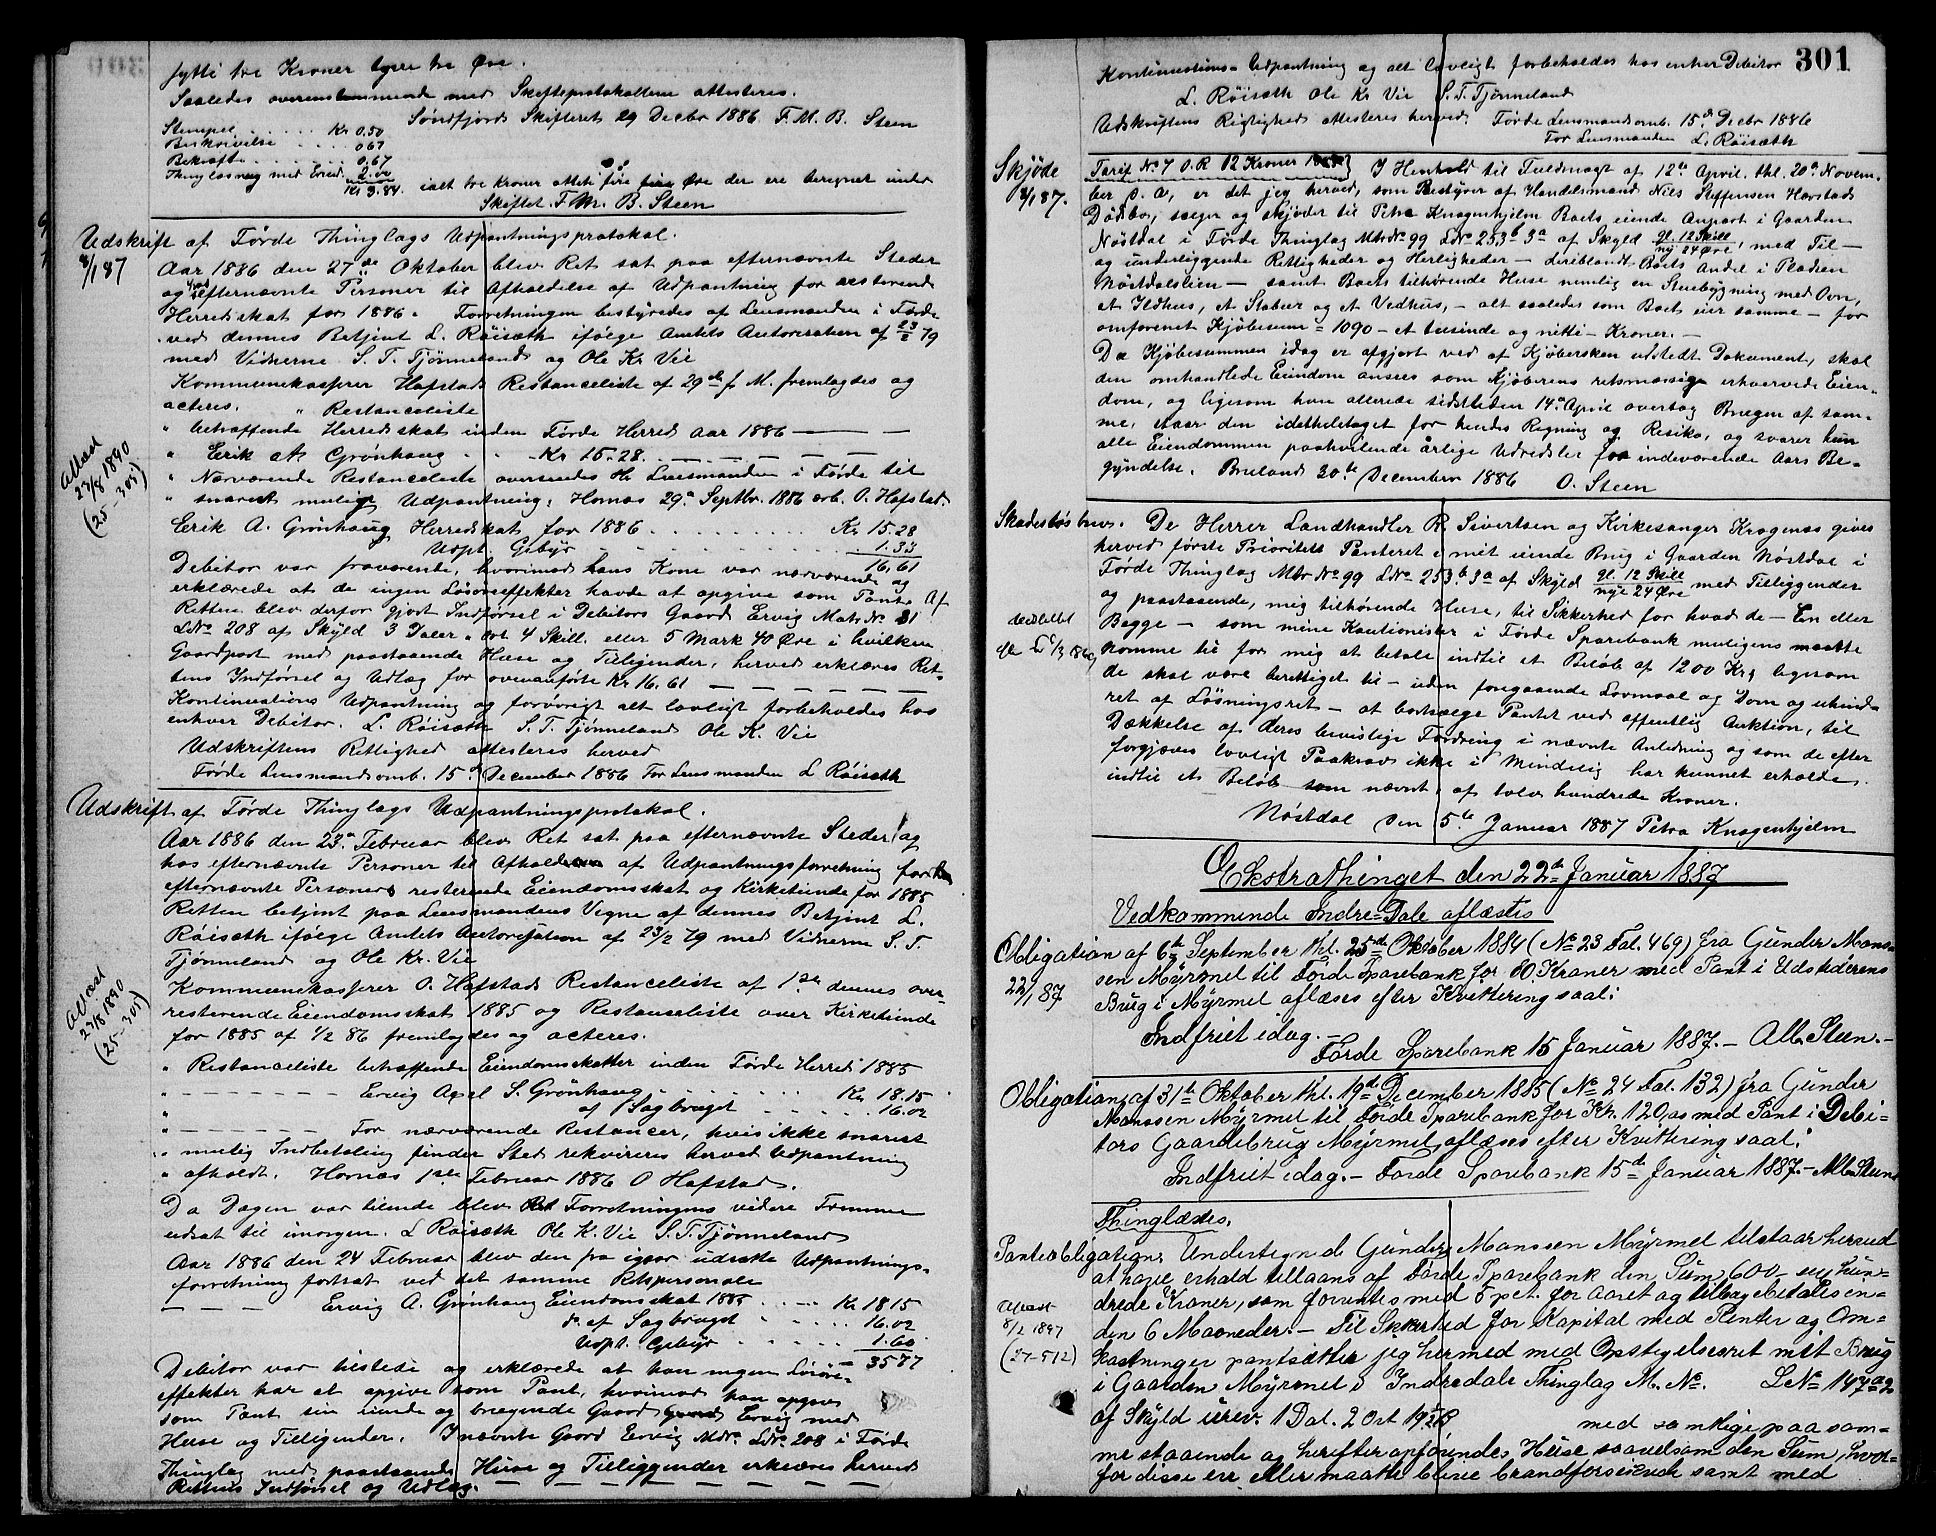 fytti tre Kroner tyve tre Øre.
Saaledes overensstemmende med Skifteprotokollen attesteres.
Søndfjords Skifteret 29 Decbr 1886 F. M. B. Steen
Stempel . . . . . . Kr 0.50
Beskrivelse . . . . 0.67
Bekræft . . . . . . 0.67
Thinglæsning med Erind. 2.00
Kr 3.84. ialt tre Kroner otteti fire Øre der ere beregnet under
Skiftet. F. M. B. Steen
Udskrift af Førde Thinglags Udpantningsprotokol.
8/1 87
Aar 1886 den 27de Oktober blev Ret sat paa efternævnte Steder
og hos efternævnte Personer til Afholdelse af Udpantning for resterende
Herredsskat for 1886. Forretningen bestyredes af Lensmanden i Førde
ved dennes Betjent L. Röisæth ifølge Amtets Autorisation af 23/2 79
med Vidnerne S. T. Tjønneland og Ole Kr. Vie
Kommunekasserer Hafstads Restanceliste af 29de f. M. fremlagdes og
acteres. " Restanceliste
" betræffende Herredsskat inden Førde Herred Aar 1886 — — —
" Erik A. Grønhaug . . - Kr 15.28. — — — — — —
" Nærværende Restanceliste oversendes Hr Lensmanden i Førde til
" snarest mulig Udpantning. Hornæs 29de Septbr. 1886 erb. O. Hafstad.
Allæst
27/8 1890
(25-305)
Erik A. Grønhaug Herredsskat for 1886 . . . . . . . . . Kr 15.28
Udpt. Gebyr . . . . . . . . . 1.33
16.61
Debitor var fraværende, hvorimod hans Kone var nærværende og
erklærede at de ingen Løsøreeffekter havde at opgive som Pant. Af
Retten blev derfor gjort Indførsel i Debitors Gaard Ervig Matr. No 31
LNo 208 af Skyld 3 Daler " Ort 4 Skill. eller 5 Mark 40 Øre i hvilken
Gaardpart med paastaaende Huse og Tilligender, herved erklæres Ret-
tens Indførsel og Udlæg for ovenanførte Kr 16.61 — — — — —
Kontinuations Udpantning og forøvrigt alt lovligt forbeholdes hos
enhver Debitor. L. Röisæth S. T. Tjønneland Ole K. Vie
Udskriftens Rettighed attesteres herved
Førde Lensmandsomb. 15de December 1886 For Lensmanden L Röisæth
Udskrift af Førde Thinglags Udpantningsprotokol.
Aar 1886 den 23de Februar blev Ret sat paa efternævnte Steder og
hos efternævnte Personer til Afholdelse af Udpantningsforretning for
efternævnte Personers resterende Eiendomsskat og Kirketiende for 1885
Retten betjent paa Lensmandens Vegne af dennes Betjent L.
Röisæth ifølge Amtets Autorisation af 23/2 79 med Vidnerne S. T.
Tjønneland og Ole Kr. Vie
Kommunekasserer O. Hafstads Restanceliste af 1ste dennes over
resterende Eiendomsskat 1885 og Restanceliste over Kirketiende
for 1885 af 1/2 86 fremlagdes og acteres.
Allæst
27/8 1890
(25-305)
" Restanceliste betræffende Eiendomsskatter inden Førde Herred 1885
" — — — — — Ervig Axel S. Grønhaug . . . . . . . Kr 18.15
" af Sagbruget . . . . . 16.02
" — — — — — For nærværende Restancer, hvis ikke snarest
" mulig Indbetaling finder Sted rekvireres herved Udpantning
" afholdt. Hornæs 1ste Februar 1886 O Hafstad.
Da Dagen var tilende blev Forretningens videre Fremme
udsat til imorgen. L Röisæth Ole K. Vie S. T. Tjønneland
Aar 1886 den 24 Februar blev den fra igaar udsatte Udpantnings-
forretning fortsat ved det samme Retspersonale
— — — Ervig A. Grønhaug Eiendomsskat 1885 . . . . Kr 18 15
do af Sagbruget . . . . . 16.02
Udpt. Gebyr . . . . 1.60
35 77
Debitor var tilstede og erklærede at han ingen Løsøre-
effekter har at opgive som Pant, hvorimod han opgav
som Pant sin eiende og brugende Gaard Ervig med
Huse og Tilligender. I nævnte Gaard Ervig MNo. LNo. 208 i Førde
Thinglag med paastaaende Huse og Tilliggender erklæres herved
Rettens Indførsel og Udlæg. — — — — — — —
301
Kontinuations-Udpantning og alt lovligt forbeholdes hos enhver Debitor
L. Röisæth Ole Kr Vie S. T. Tjønneland
Udskriftens Rigtighed attesteres herved. Førde Lensmandsomb. 15de Decbr 1886
For Lensmanden L. Röisæth
Skjøde
8/1 87.
Tarif No 7 O. R 12 Kroner I Henhold til Fuldmagt af 12te April thl. 20de Novem-
ber d. A, er det jeg herved, som Bestyrer af Handelsmand Nils Steffensen Havstads
Dødsbo, sælger og skjøder til Petra Knagenhjelm Boets eiende Anpart i Gaarden
Nøstdal i Førde Thinglag Mtr No 99 LNo 253b 3a af Skyld gl. 12 Skill ny 24 Øre, med Til-
og underliggende Rettigheder og Herligheder — deriblandt Boets Andel i Pladsen
Nøstdalslien — samt Boets tilhørende Huse nemlig en Stuebygning med Ovn,
et Ildhus, et Stabur og et Vedhus, — alt saaledes som Boet eier samme — for
omforenet Kjøbesum = 1090 – et tusinde og nitti – Kroner. —
Da Kjøbesummen idag er afgjort ved af Kjøbersken udstedt Dokument, skal
den omhandlede Eiendom ansees som Kjøberens retsmæssige erhvervede Eien-
dom, og ligesom hun allerede sidstleden 14de April overtog Brugen af sam-
me, staar den idetheletaget for hendes Regning og Risiko, og svarer hun
alle Eiendommen paahvilende årlige Udredsler fra indeværende Aars Be-
gyndelse. Bruland 30te December 1886 O. Steen
Skadesløsbrev. De Herrer Landhandler R. Sivertsen og Kirkesanger Krogenæs gives
herved første Prioritets Panteret i mit eiende Brug i Gaarden Nøstdal i
Førde Thinglag Mtr No 99 LNo 253b 3a af Skyld gl. 12 Skill nye 24 Øre med Tilliggender
og paastaaende, mig tilhørende Huse, til Sikkerhed for hvad de — En eller
Begge — som mine Kautionister i Førde Sparebank muligens maatte
komme til for mig at betale indtil et Beløb af 1200 Kr, ligesom
de skal være berettiget til — uden foregaaende Lovmaal og Dom og uhind-
ret af Løsningsret — at bortsælge Pantet ved offentlig Auktion, til
Dækkelse af deres bevislige Fordring i nævnte Anledning og som de efter
forgjæves lovligt Paakrav ikke i Mindelig har kunnet erholde,
indtil et Beløb som nævnt, af tolv hundrede Kroner.
Nøstdal den 5te Januar 1887 Petra Knagenhjelm
Ekstrathinget den 22de Januar 1887
Vedkommende Indre-Dale aflæstes
Obligation af 6te September thl. 25de Oktober 1884 (No 23 Fol. 469) fra Gunder Mons-
22/1 87
sen Myrmel til Førde Sparebank for 80 Kroner med Pant i Udstederens
Brug i Myrmel aflæses efter Kvittering saal:
Indfriet idag. —
Førde Sparebank 15 Januar 1887. — Alb. Steen. —
Obligation af 31te Oktober thl. 19de December 1885 (No 24 Fol. 132) fra Gunder
Monssen Myrmel til Førde Sparebank for Kr. 120,00 med Pant i Debi-
tors Gaardebrug Myrmel, aflæses efter Kvittering saal:
Indfriet idag. — Førde Sparebank 15de Januar 1887. — Alb Steen
Thinglæstes.
Panteobligation. Undertegnede Gunder Monssen Myrmel tilstaar herved
at have erhold tillaans af Førde Sparebank den Sum 600 – sex hun-
drede Kroner, som forrentes med 5 pct. for Aaret og tilbagebetales in-
den 6 Maaneder. — Til Sikkerhed for Kapital med Renter og Om-
kostninger pantsætter jeg hermed med Opstigelsesret mit Brug
i Gaarden Myrmel i Indredale Thinglag M. No. LNo 147a2
af Skyld urev. 1 Dal. 2 Ort 19 ß med samtlige paa sam-
me staaende og herefter opførendes Huse saavelsom den Sum, hvor-
for disse ere eller maatte blive brandforsikrede samt med
Aflæst
8/2 1897
(27-512)